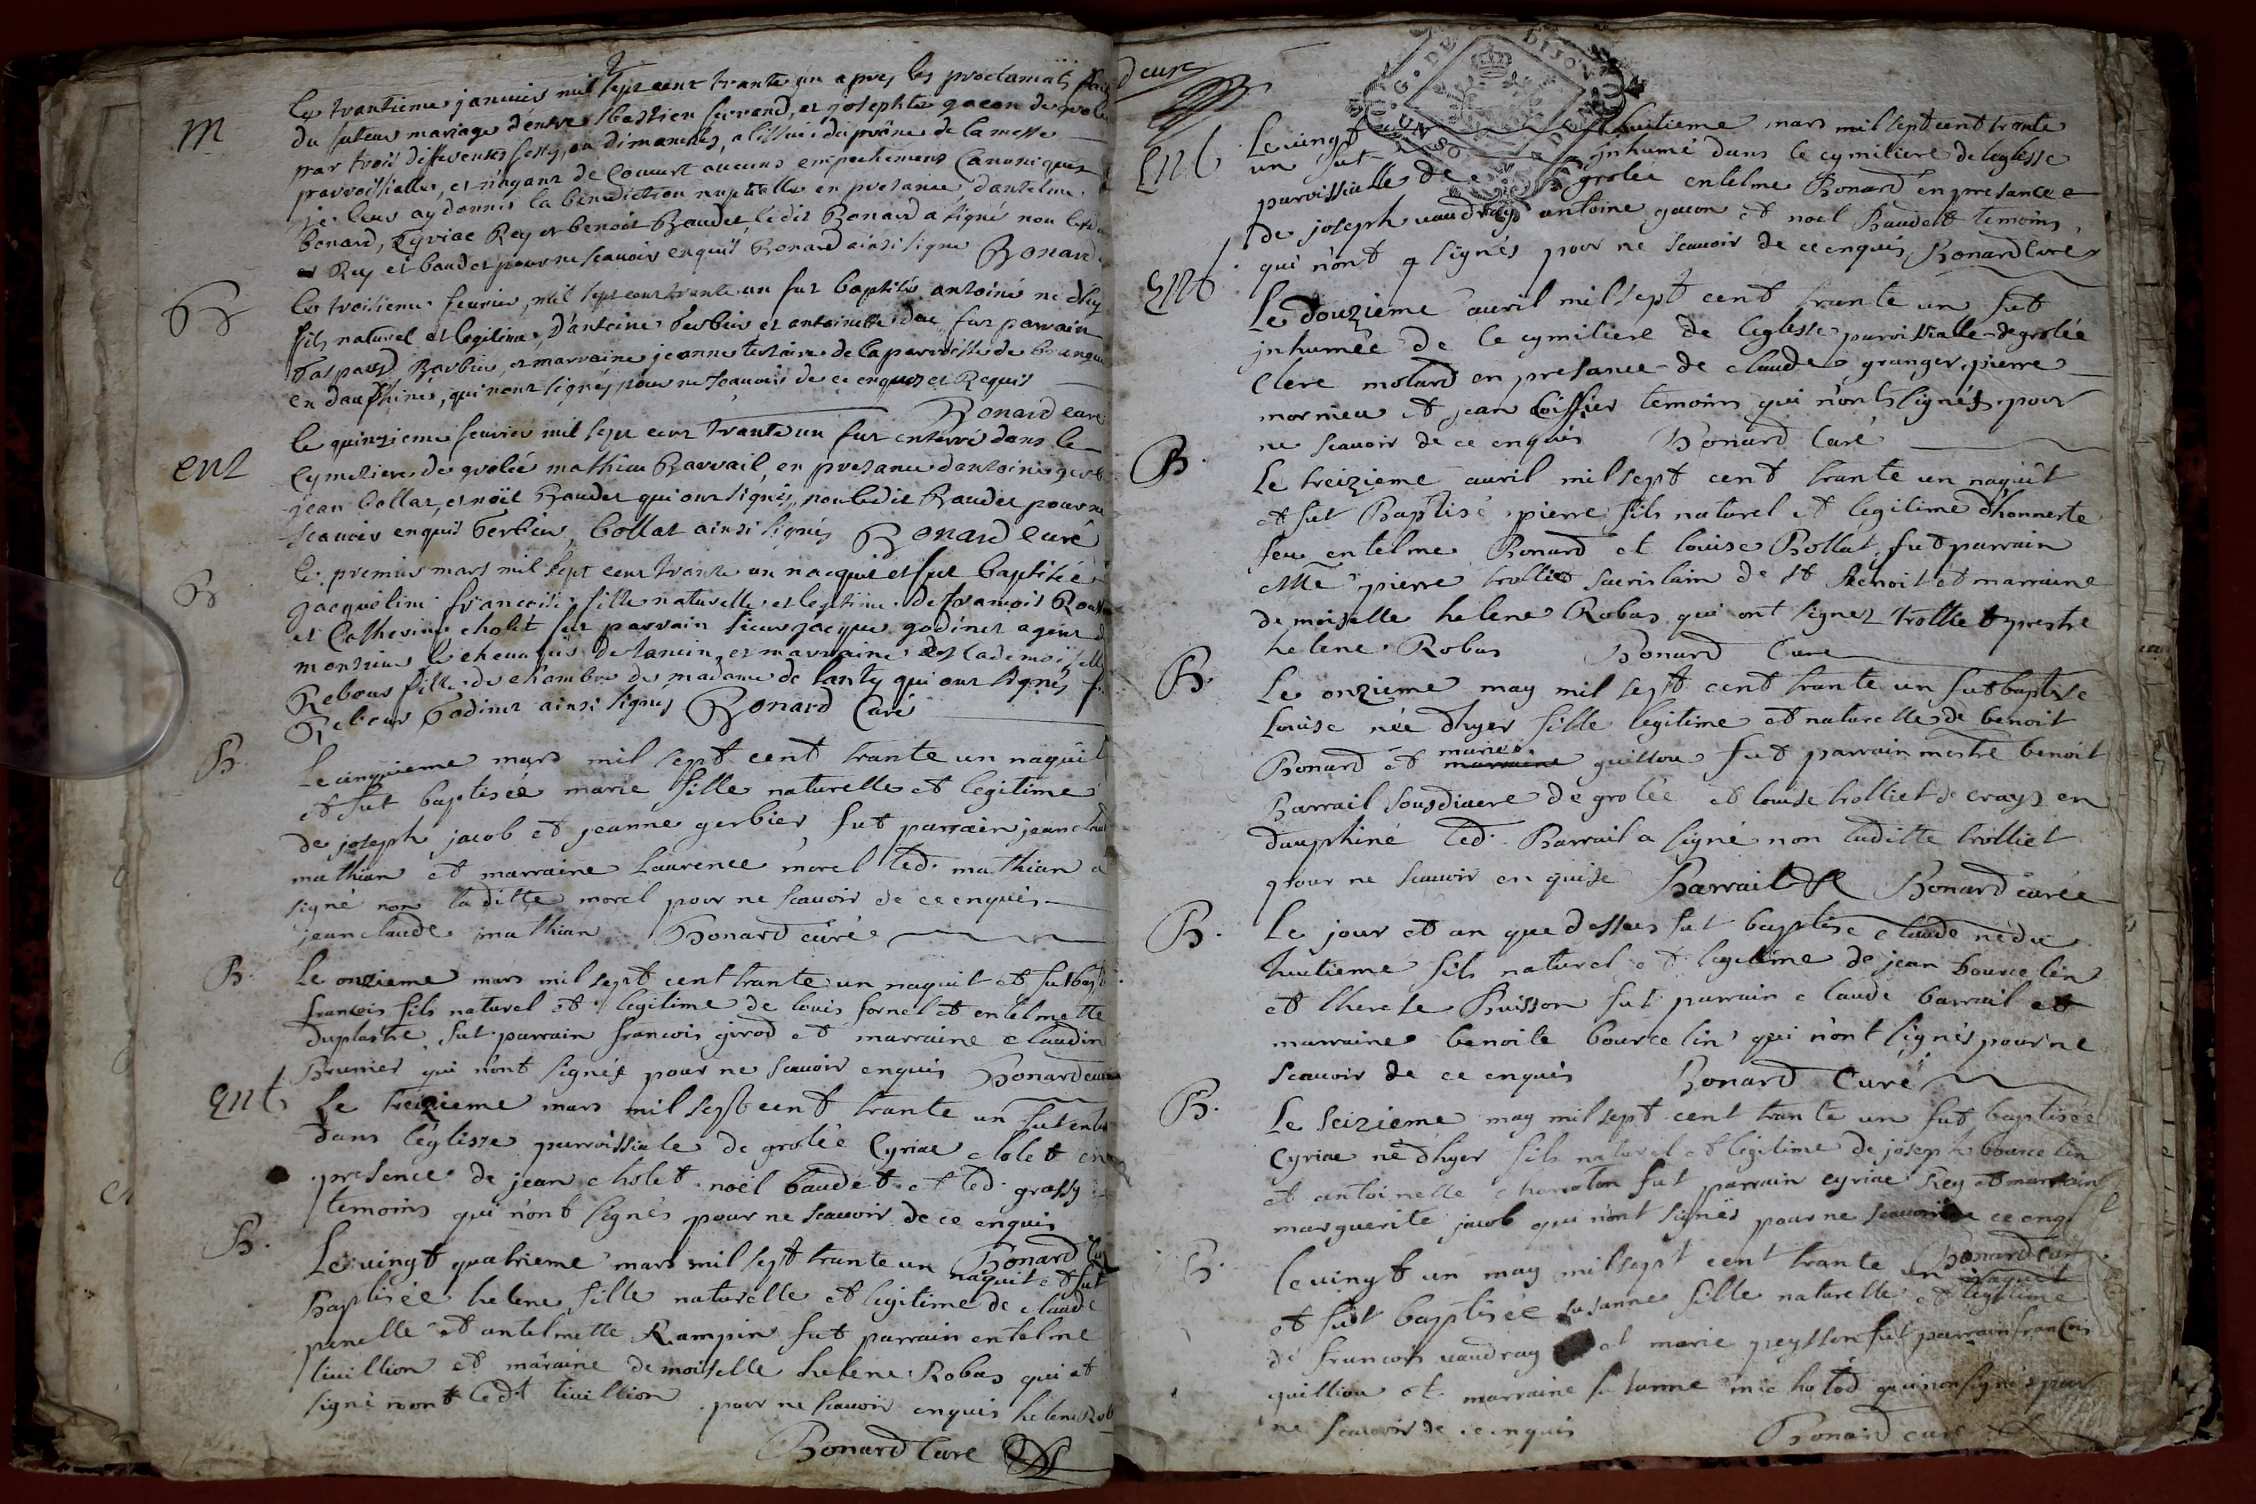 M
Le trantieme janvier mil sept cent trante un apres les proclamati
du futeur mariage d'entre sbastien ferrand, et josephte gacon de grole
par trois differentes festes, ou dimanches, a l'issue du prône de la messe
parroissialle, et n'ayant decouvert aucuns empechemens Canoniques
je leur ay donnés la benediction nuptialle en presance d'antelme
bonard, Cyriac Rey et benoit Baudet, ledit Bonard a signé non lesd
Rey et baudet pour ne scavoir enquis Bonard ainsi signe Bonard
B
Le troisieme fevrier, mil sept cent trante un fut baptisé antoine né d'hy
fils naturel et legitime, d'antoine Gerbier et antoinette fut parrain
Gaspard Barbier, et marraine jeanne de la parroisse de
en dauphiné, qui n'ont signés pour ne scavoir de ce enquis et Requis
Bonard curé
ent
le quinzieme fevrier mil sept cent trante un fut enterré dans le
Cymetiere de grolée mathieu Barrail, en presance d'antoine gerb
jean bollat, et noël Baudet qui ont signés, non ledit Baudet pour ne
scavoir enquis Gerbier, bollat ainsi signés Bonard curé
B
Le premier mars mil sept cent trante un nacquit et fut baptisée
jacqueline francoise fille naturelle et legitime de francois
et Catherine cholet fut parrain sieur jacque godinet agent
monsieur le chevalier de tancin, et marraine lademoiselle
Rebour fille de chambre de madame de lanty qui ont signés
Rebour Godinet ainsi signés Bonard Curé
B.
Le cinquieme mars mil sept cent trante un naquit
et fut baptisée marie fille naturelle et legitime
de joseph jacob et jeanne gerbier, fut parrain jean claud
mathian et marraine Laurence morel led. mathian a
signé non laditte morel pour ne scavoir de ce enquis
jean claude mathian Bonard curé
B.
Le onzieme mars mil sept cent trante un naquit et fut bapt
francois fils naturel et legitime de louis fornel et entelmette
duplastre, fut parrain francois girod et marraine claudin
Brunier qui n'ont signés pour ne scavoir enquis Bonard curé
Ent
Le treizieme mars mil sept cent trante un fut enter
dans l'eglisse parroissiale de grolée Cyriac clolet en
presence de jean cholet noël baudet et led. grassy
temoins qui n'ont signés pour ne scavoir de ce enquis
Bonard Cur
B.
Le vingt quatrieme mars mil sept trante un naquit et fut
Baptisée helene fille naturelle et legitime de claude
penelle et antelmette Rampin fut parrain entelme
tivillion et maraine demoiselle helene Robas qui at
signé non led. tivillion pour ne scavoir enquis helene Rob
Bonard Curé
d curé
DE DIJON
Ent.
Le vingt huitieme mars mil sept cent trante
un fut inhumé dans le cymitiere de leglisse
parroissialle de grolée entelme Bonard en presance
de joseph vaudray antoine gacon et noel Baudet temoins
qui n'ont signés pour ne scavoir de ce enquis, Bonard Curé
Ent.
Le douzieme avril mil sept cent trante un fut
jnhumée de le cymitiere de leglisse parroissialle de grolée
Clere molard en presance de claude granger, pierre
mornieu et jean loissier temoins qui n'ont signés pour
ne scavoir de ce enquis Bonard Curé
B.
Le treizieme avril mil sept cent trante un naquit
et fut Baptisé pierre fils naturel et legitime d'honneste
feu entelme Bonard et louise Bollat, fut parrain
Mre pierre trolliet sacristain de st Benoit et marraine
demoiselle helene Robas qui ont signez trolliet prestre
helene Robas Bonard Curé
B.
Le onzieme may mil sept cent trante un fut baptisé
Louise née d'hyer fille legitime et naturelle de benoit
Bonard et marie guillou fut parrain mestre benoit
Barrail sousdiacre de grolée et louise trolliet de crays en
dauphiné led. Barrail a signé non laditte trolliet
pour ne scavoir en quise Barrail Bonard curée
B.
Le jour et an que dessus fut baptise claude né du
huitieme fils naturel et legitime de jean bourcelin
et therese Buisson fut parrain claude barrail et
marraine benoite bourcelin qui n'ont signés pour ne
scavoir de ce enquis Bonard Curé
B.
Le seizieme may mil sept cent trante un fut baptisée
Cyriac né d'hyer fils naturel et legitime de joseph bourcelin
et antoinette fut parrain cyriac Rey et marrain
marguerite jacob qui n'ont signés pour ne scavoir ce enq
Bonard cur
B.
le vingt un may mil sept cent trante un naquit
et fut baptisée susanne fille naturelle et legitime
de francois vaudray et marie peysson fut parrain francois
quillion et marraine susanne michotod qui non signés pour
ne scavoir de ce enquis
Bonard curé